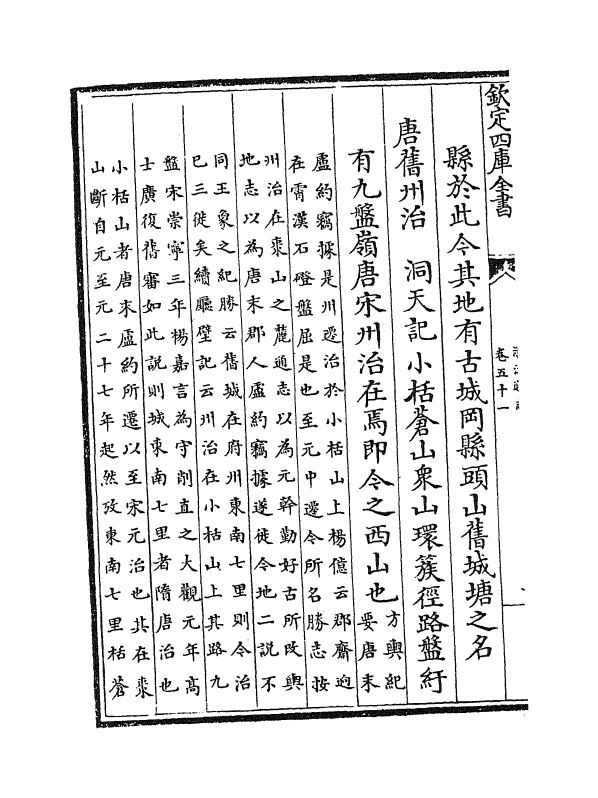 欽定四庫全書
卷五十一
縣於此今其地有古城岡縣頭山舊城塘之名
唐舊州治　洞天記小栝蒼山衆山環簇徑路盤紆
有九盤嶺唐宋州治在焉即今之西山也
方輿紀
要唐末
盧約竊據是州遷治於小栝山上楊億云郡齋逈
在霄漢石磴盤屈是也至元中遷今所名勝志按
州治在棗山之麓通志以為元斡勤好古所改輿
地志以為唐末郡人盧約竊據遂徙今地二說不
同王象之紀勝云舊城在府州東南七里則今治
已三徙矣續廳壁記云州治在小栝山上其路九
盤宋崇寧三年楊嘉言為守削直之大觀元年高
士廣復舊審如此說則城東南七里者隋唐治也
小栝山者唐末盧約所遷以至宋元治也其在棗
山斷自元至元二十七年起然攷東南七里栝蒼